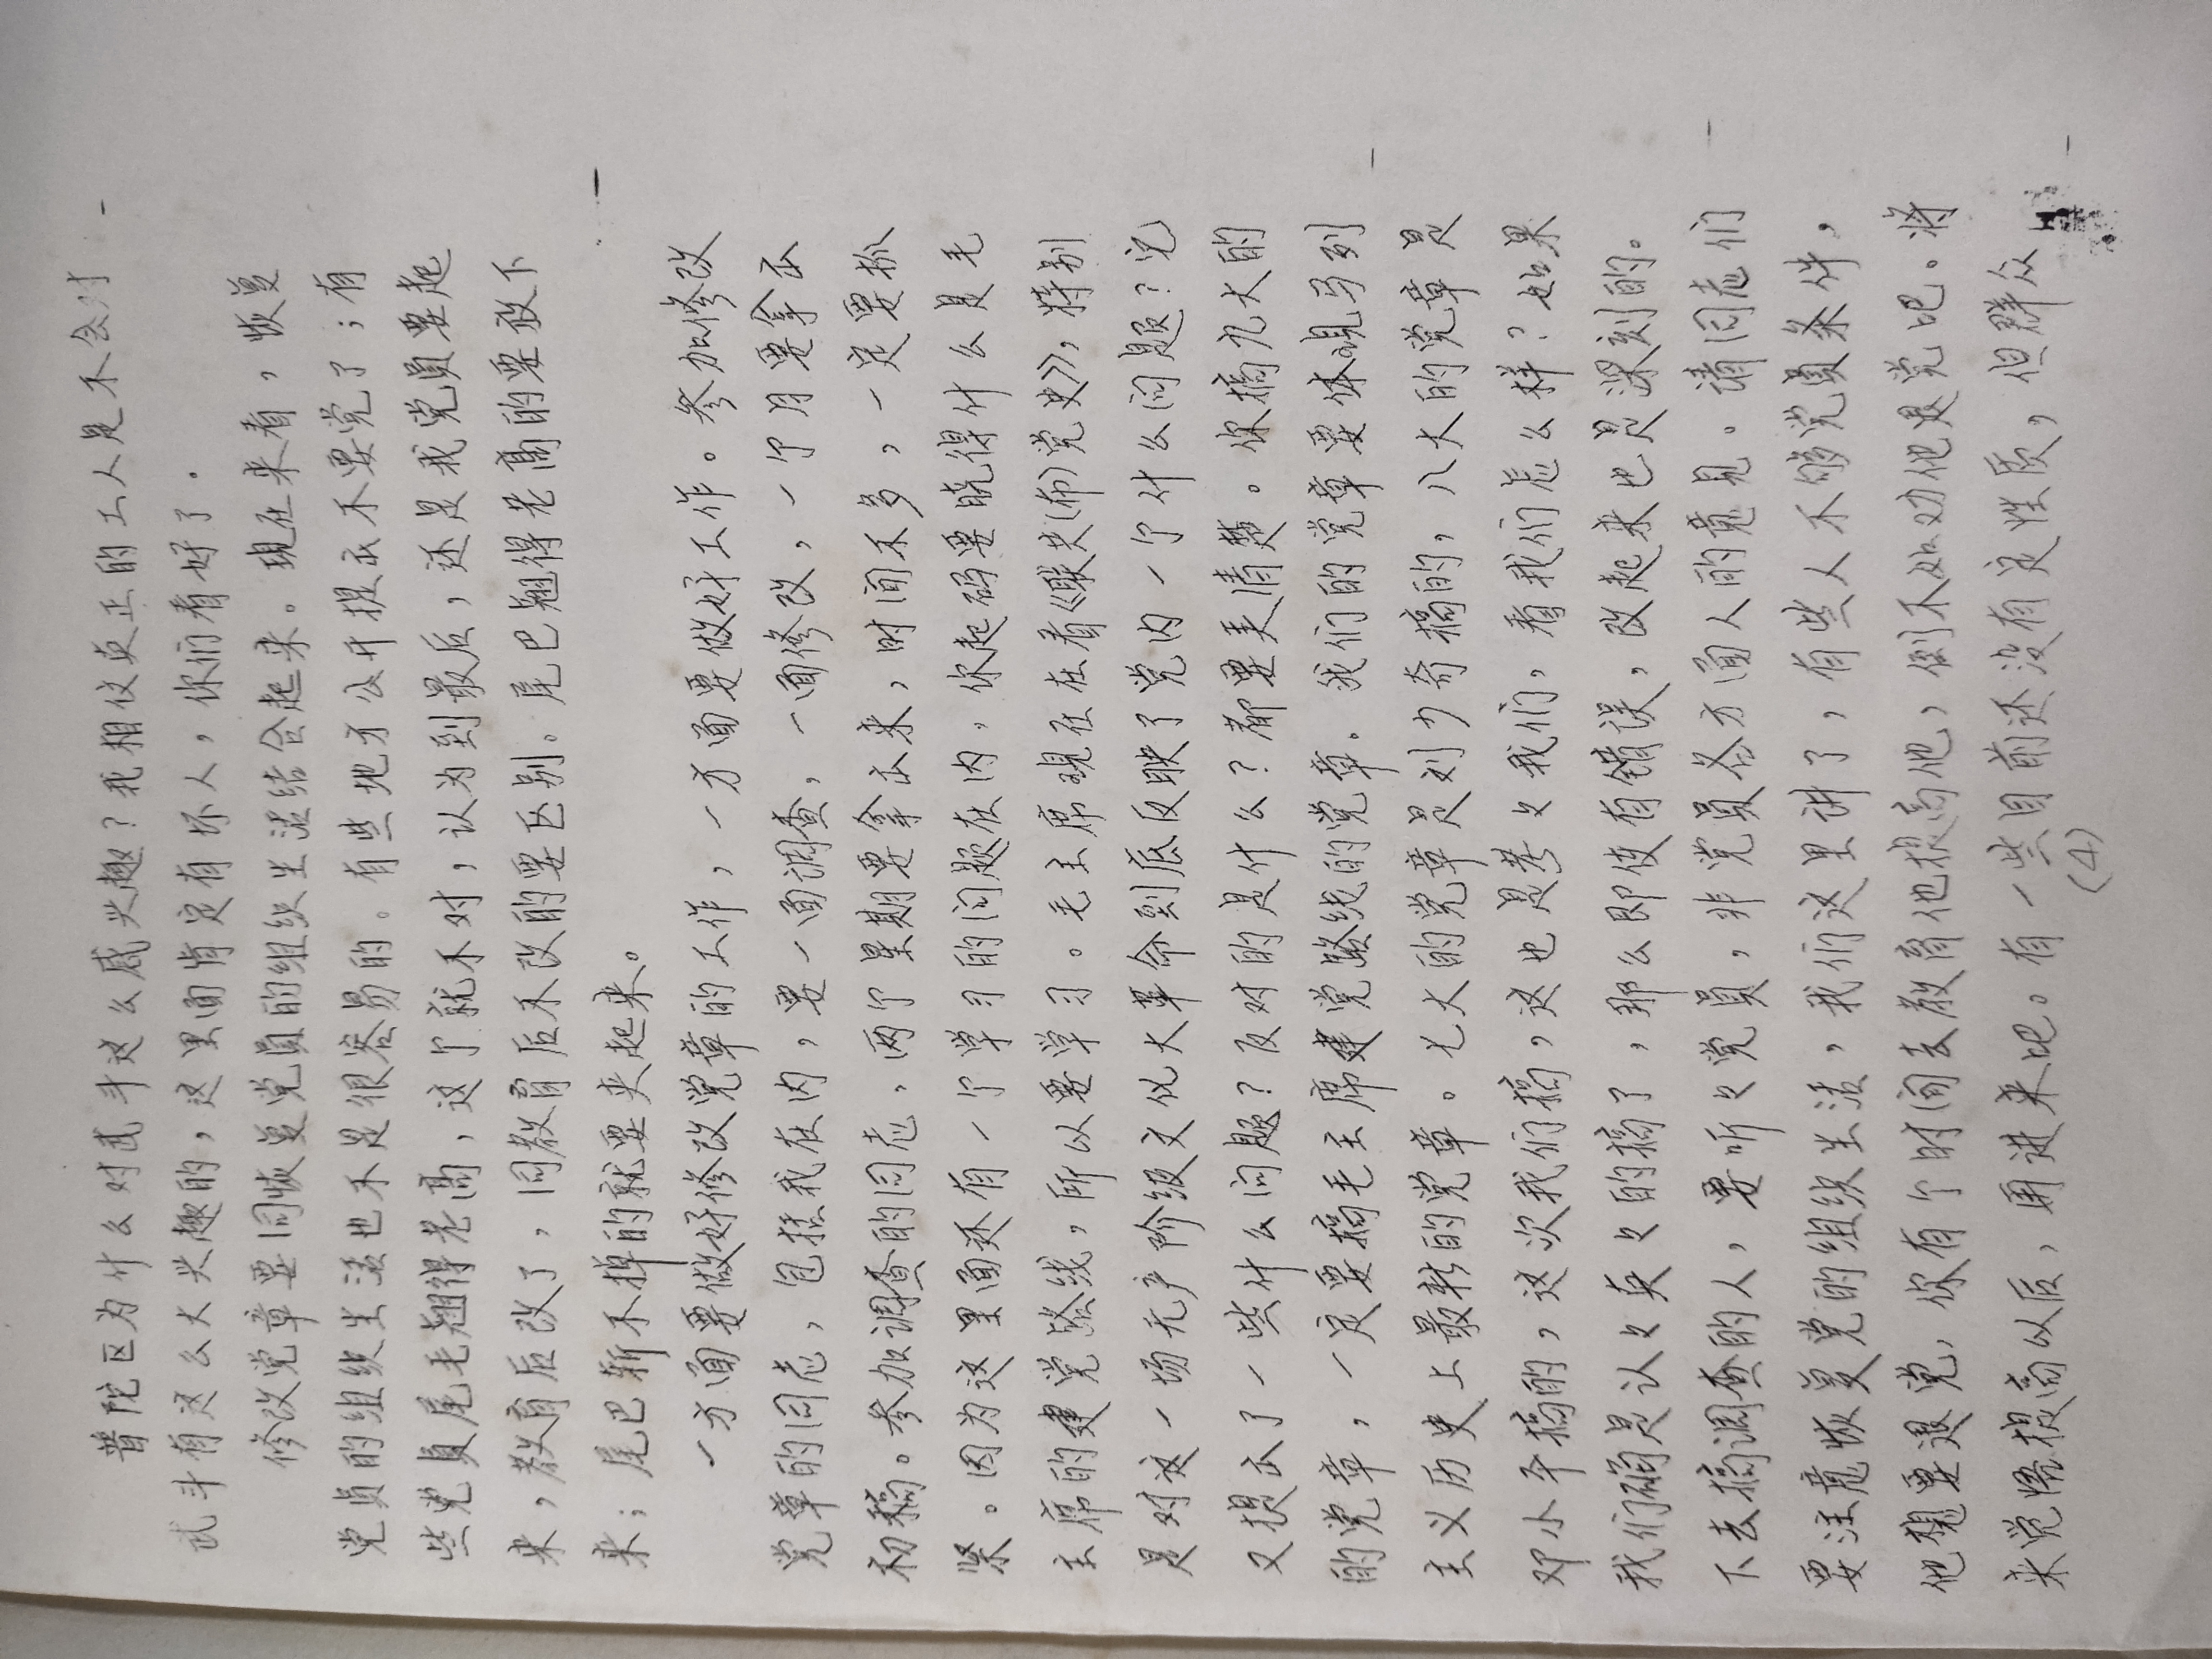 普陀区为什么对武斗这么感兴趣？我相仪真正的工人是不会对
武斗有这么大兴趣的，这里面肯定有坏人，你们看好了．
修改党章要同恢复党员的组织生活结合起来。现在来看，恢复
党员的组织生活也不是很容易的。有些地方公开提云不要党了；有
些党员尾毛翘得老高，这个就不对，认为到最后，还是我党员要起
来，教育后改了，同教育后不改的要区别。尾巴翘得老高的要放下
来；尾巴斩不掉的就要夹起来。
一方面要做好修改党章的工作，一方面要做好工作。参加修改
党章的同志，包括我在内，要一面调查，一面修改，一个月要拿云
初稿。参加调查的同志，两个星期要拿云来，时间不多，一定要抓
紧。因为这里面还有一个学习的问题在内，你起码要晓得什么是毛
主席的建党路线，所以要学习。毛主席现在在看《联共(布)党史》，特别
是对这一场无产阶级文化大革命到底反映了党内一个什么问题？它
又提云了一些什么问题？反对的是什么？都要弄清楚。你搞九大的
的党章，一定要搞毛主席建党路线的党章。我们的党章要体现马列
主义历史上最新的党章。七大的党章是刘少奇搞的，八大的党章是
邓小平搞的，这次我们搞，这也是考々我们，看我们怎么样？如果
我们确是认々真々的搞了，那么即使有错误，改起来也是深刻的。
下去搞调查的人，要听々党员，非党员各方面人的意见。请同志们
要注意恢复党的组织生活，我们这里讲了，有些人不够党员条件，
他想要退党，你有个时间去教育他提高他，倒不如劝他退党吧。将
来觉悟提高以后，再进来吧。有一些目前还没有定性质，但群众
(4)